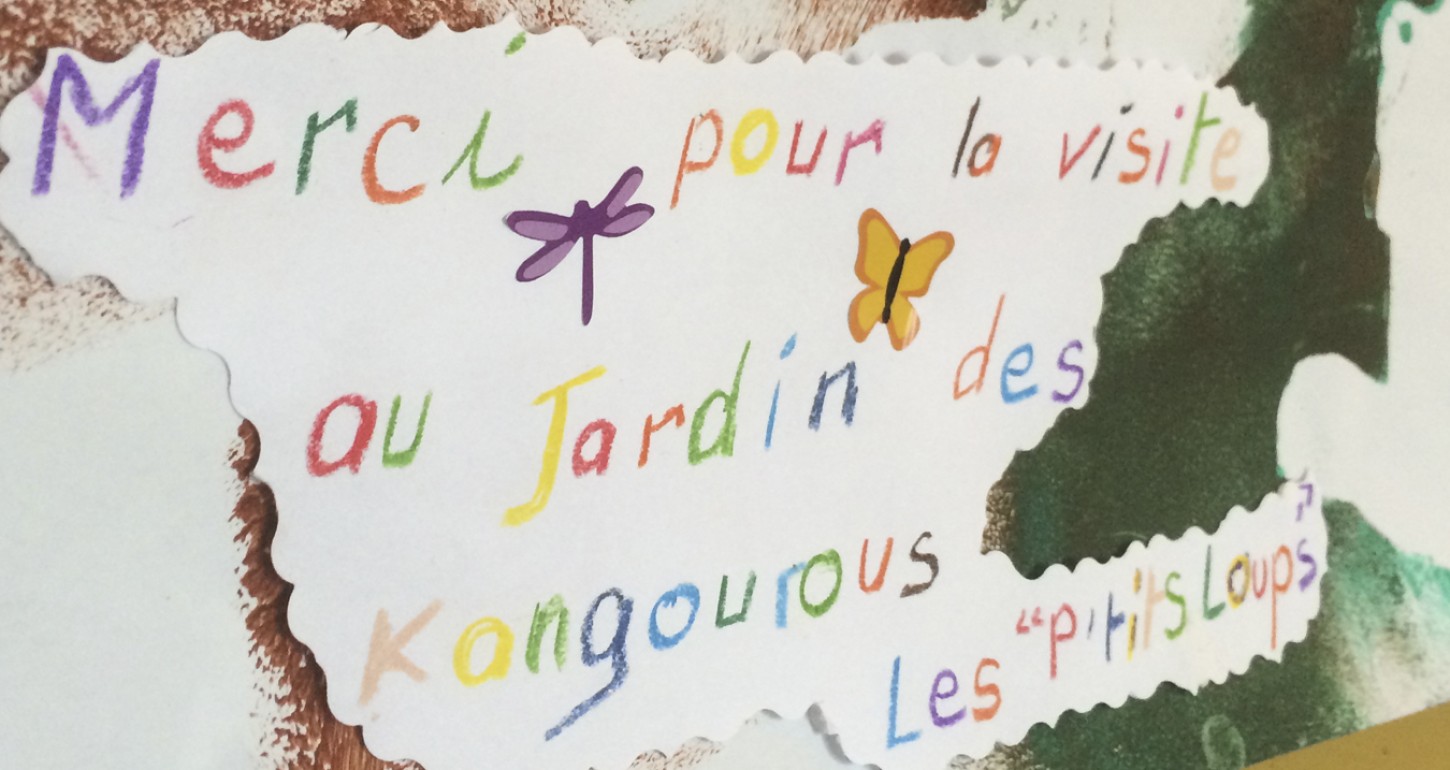 Merci pour la visite
au Jardin des
Kangourous
Les "p'tits Loups"